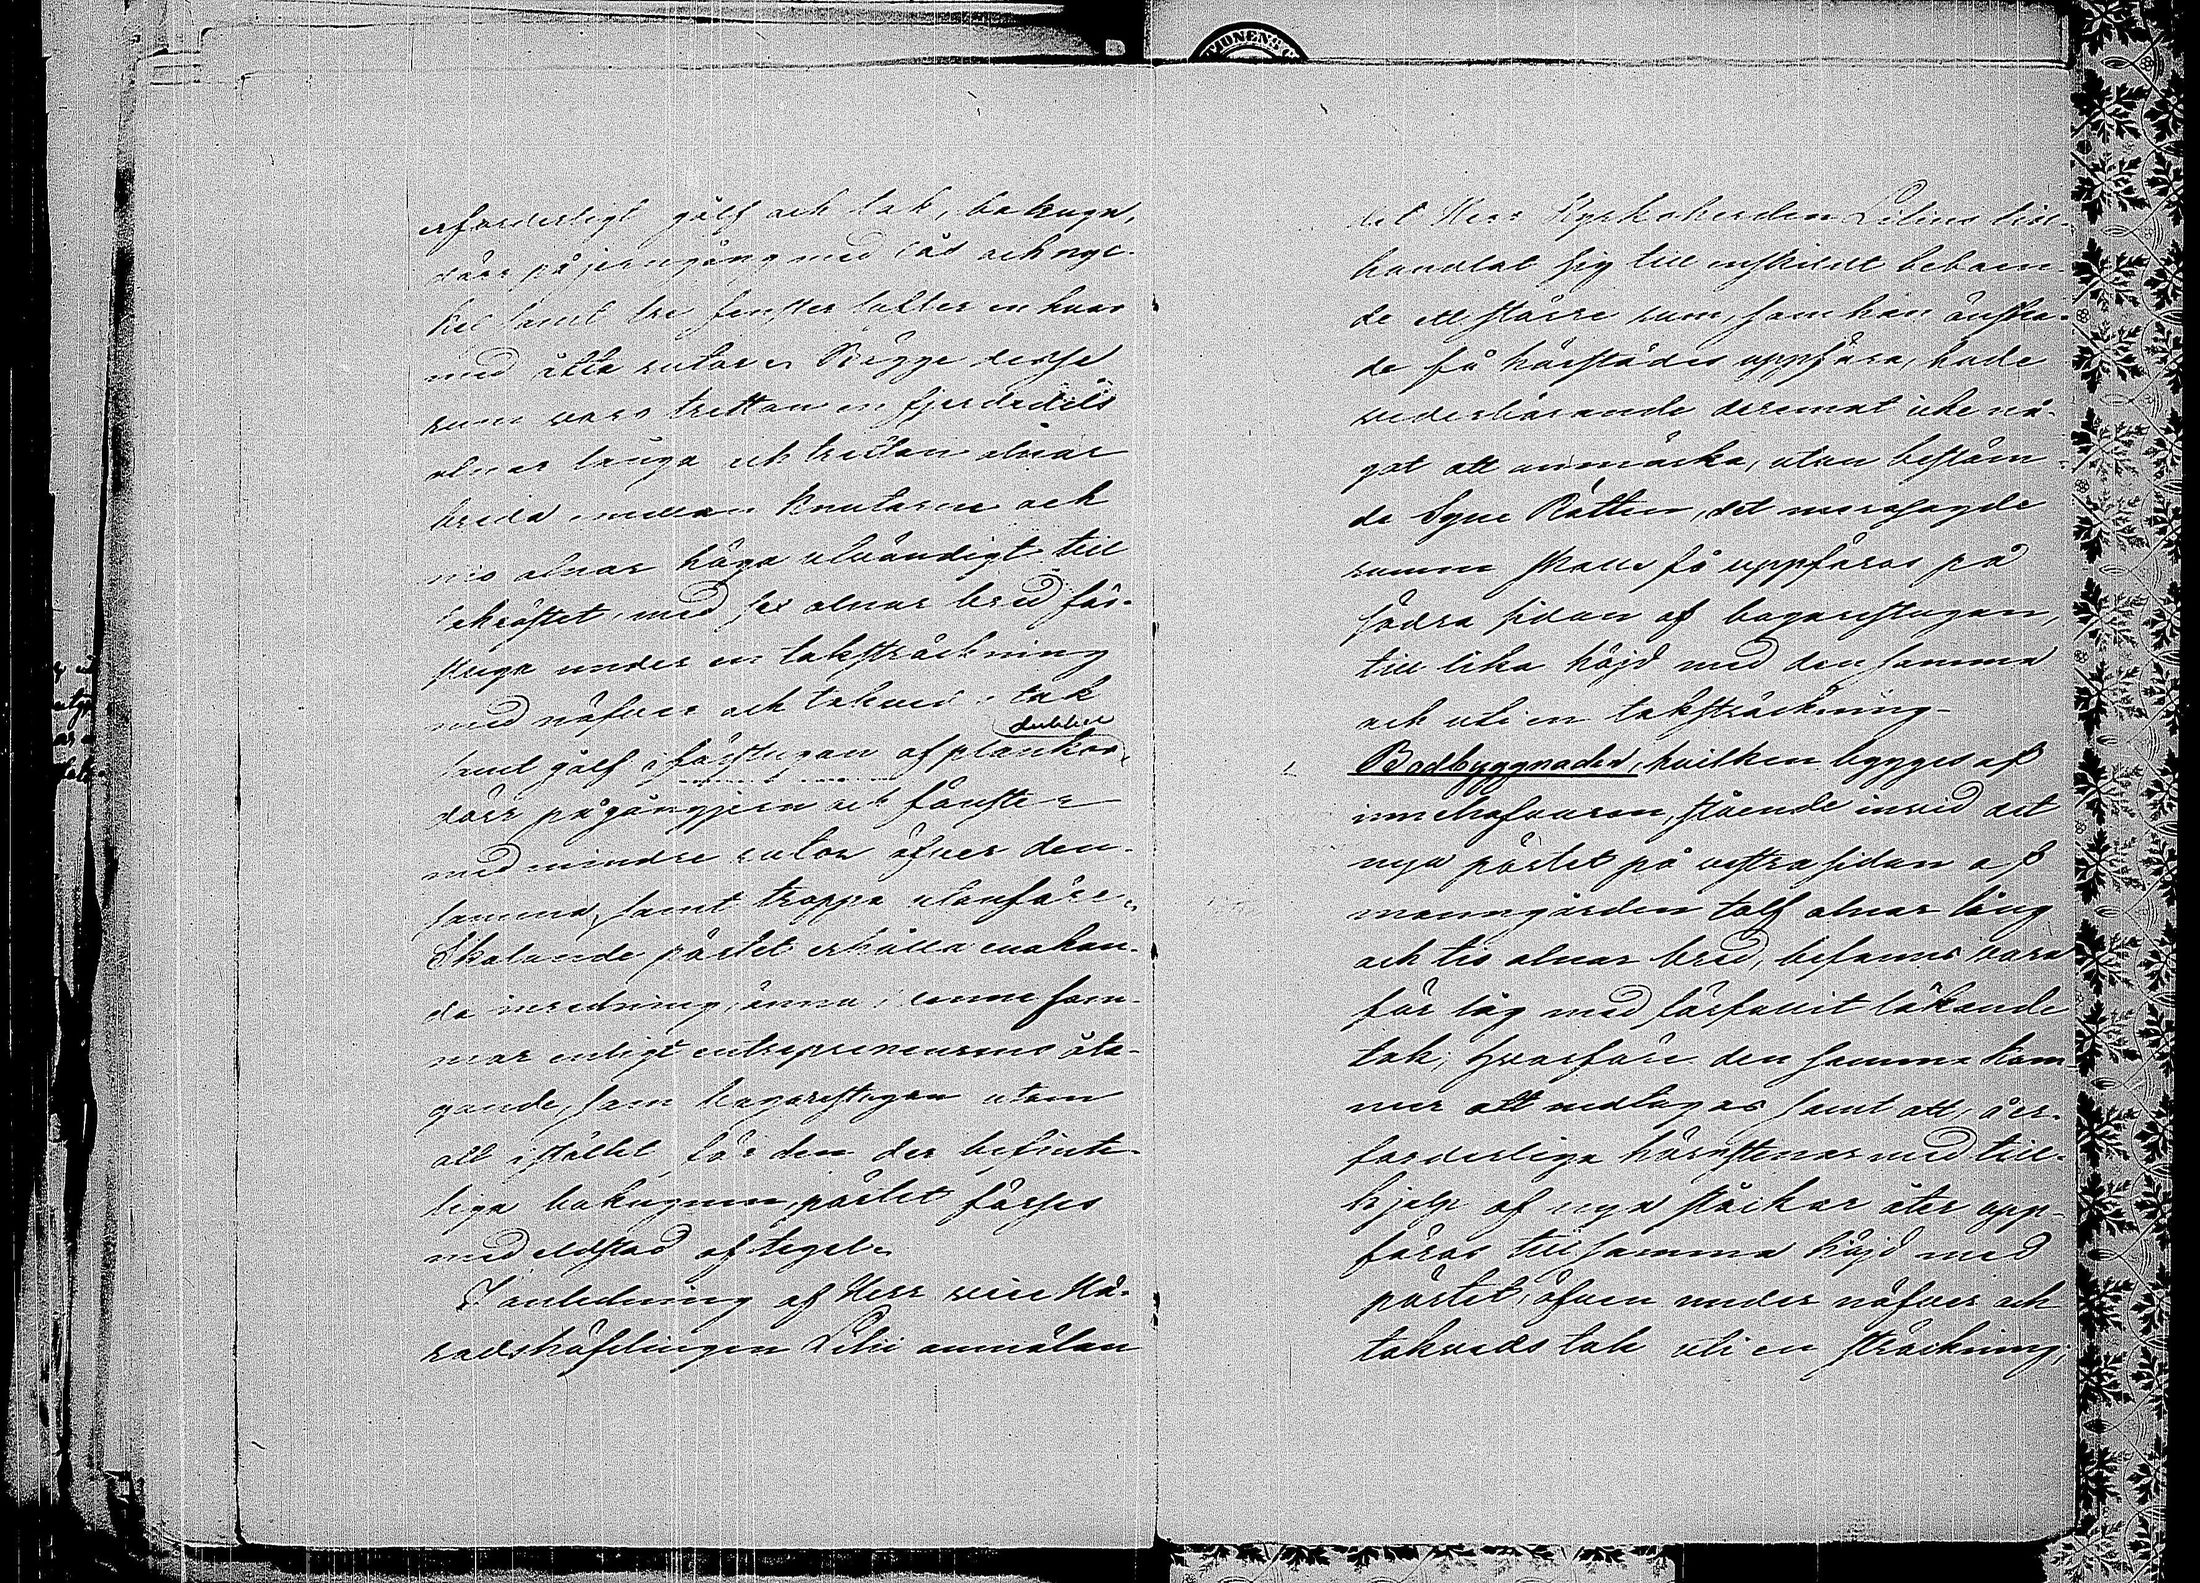 erforderligt gålf och tak, bakugn,
dörr på jerngång med lås och nyc-
kel samt tre fenster lufter en hvar
med åtta rutor. Bägge dessa
rum voro tretton en fjerdedels
alnar långa och tretton alnar
breda mellan knutarne och
nio alnar höga utvändigt till
takröstet, med sex alnar bred för-
stuga under en taksträckning
med näfver och takved i tak
dubbel
samt gålf i förstugan af plankor,
dörr på gångjern och fönster
med mindre rutor öfver den-
samma, samt trappa utanföre.
Skolande pörtet erhålla enahan-
da inredning ännu i denne som-
mar enligt entrepreneurens åta-
gande, som bagarestugan utom
att i stället för den der befinte-
liga bakugnen, pörtet förses
med eldstad af tegel.
I anledning af Herr vice Hä-
radshöfdingen Lilii anmälan
det Herr Kyrkoherden Lilius till-
handlat sig till enskildt beboen-
de ett större rum, som han önska-
de få härstädes uppföra, hade
vederbörande deremot icke nå-
got att anmärka, utan bestäm-
de Syne Rätten, det mersagde
rummet skulle få uppföras på
södra sidan af bagarestugan,
till lika höjd med den samma
och uti en taksträckning.
Bodbyggnaden, hvilken bygges af
innehafvaren, stående invid det
nya pörtet på vestra sidan af
manngården tolf alnar lång
och tio alnar bred, befanns vara
för låg med förfallit läkande
tak; hvarföre den samma kom-
mer att nedtagas samt att, å er-
forderliga hörnstenar med till-
hjelp af nya stockar åter upp-
föras till samma höjd med
pörtet, äfven under näfver och
takveds tak uti en sträckning;